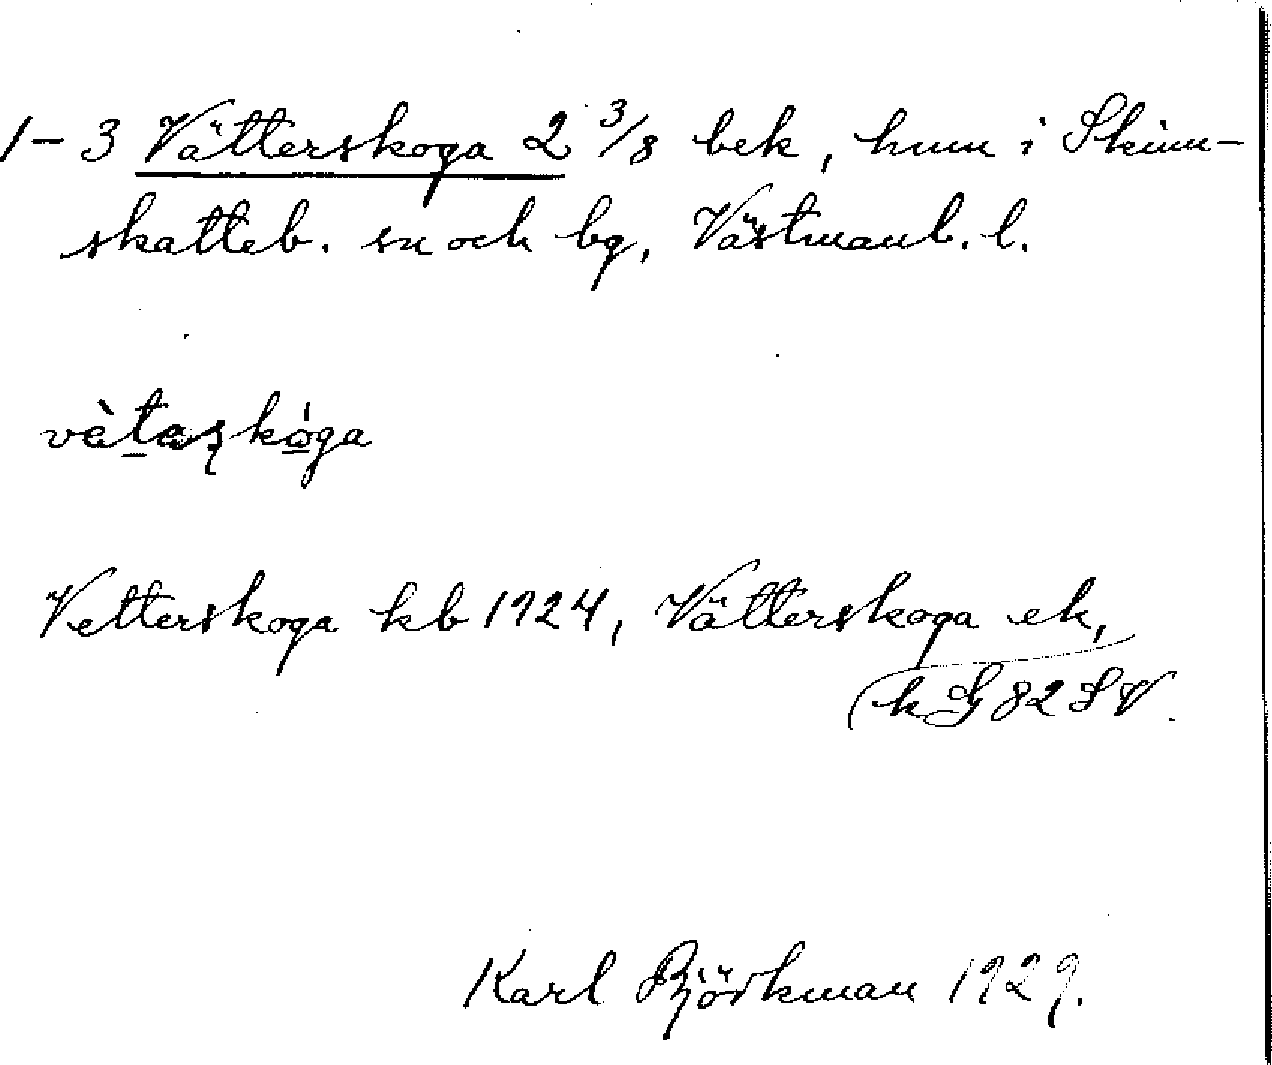 1-3 Vätterskoga 2 3/8 bek, hmm i Skinn-
skatteb. sn och bg, Västmanl. l.
vètaʂkòga
Vetterskoga kb 1924, Vätterskoga ek,
(k G 82 SV.
Karl Björkman 1929.